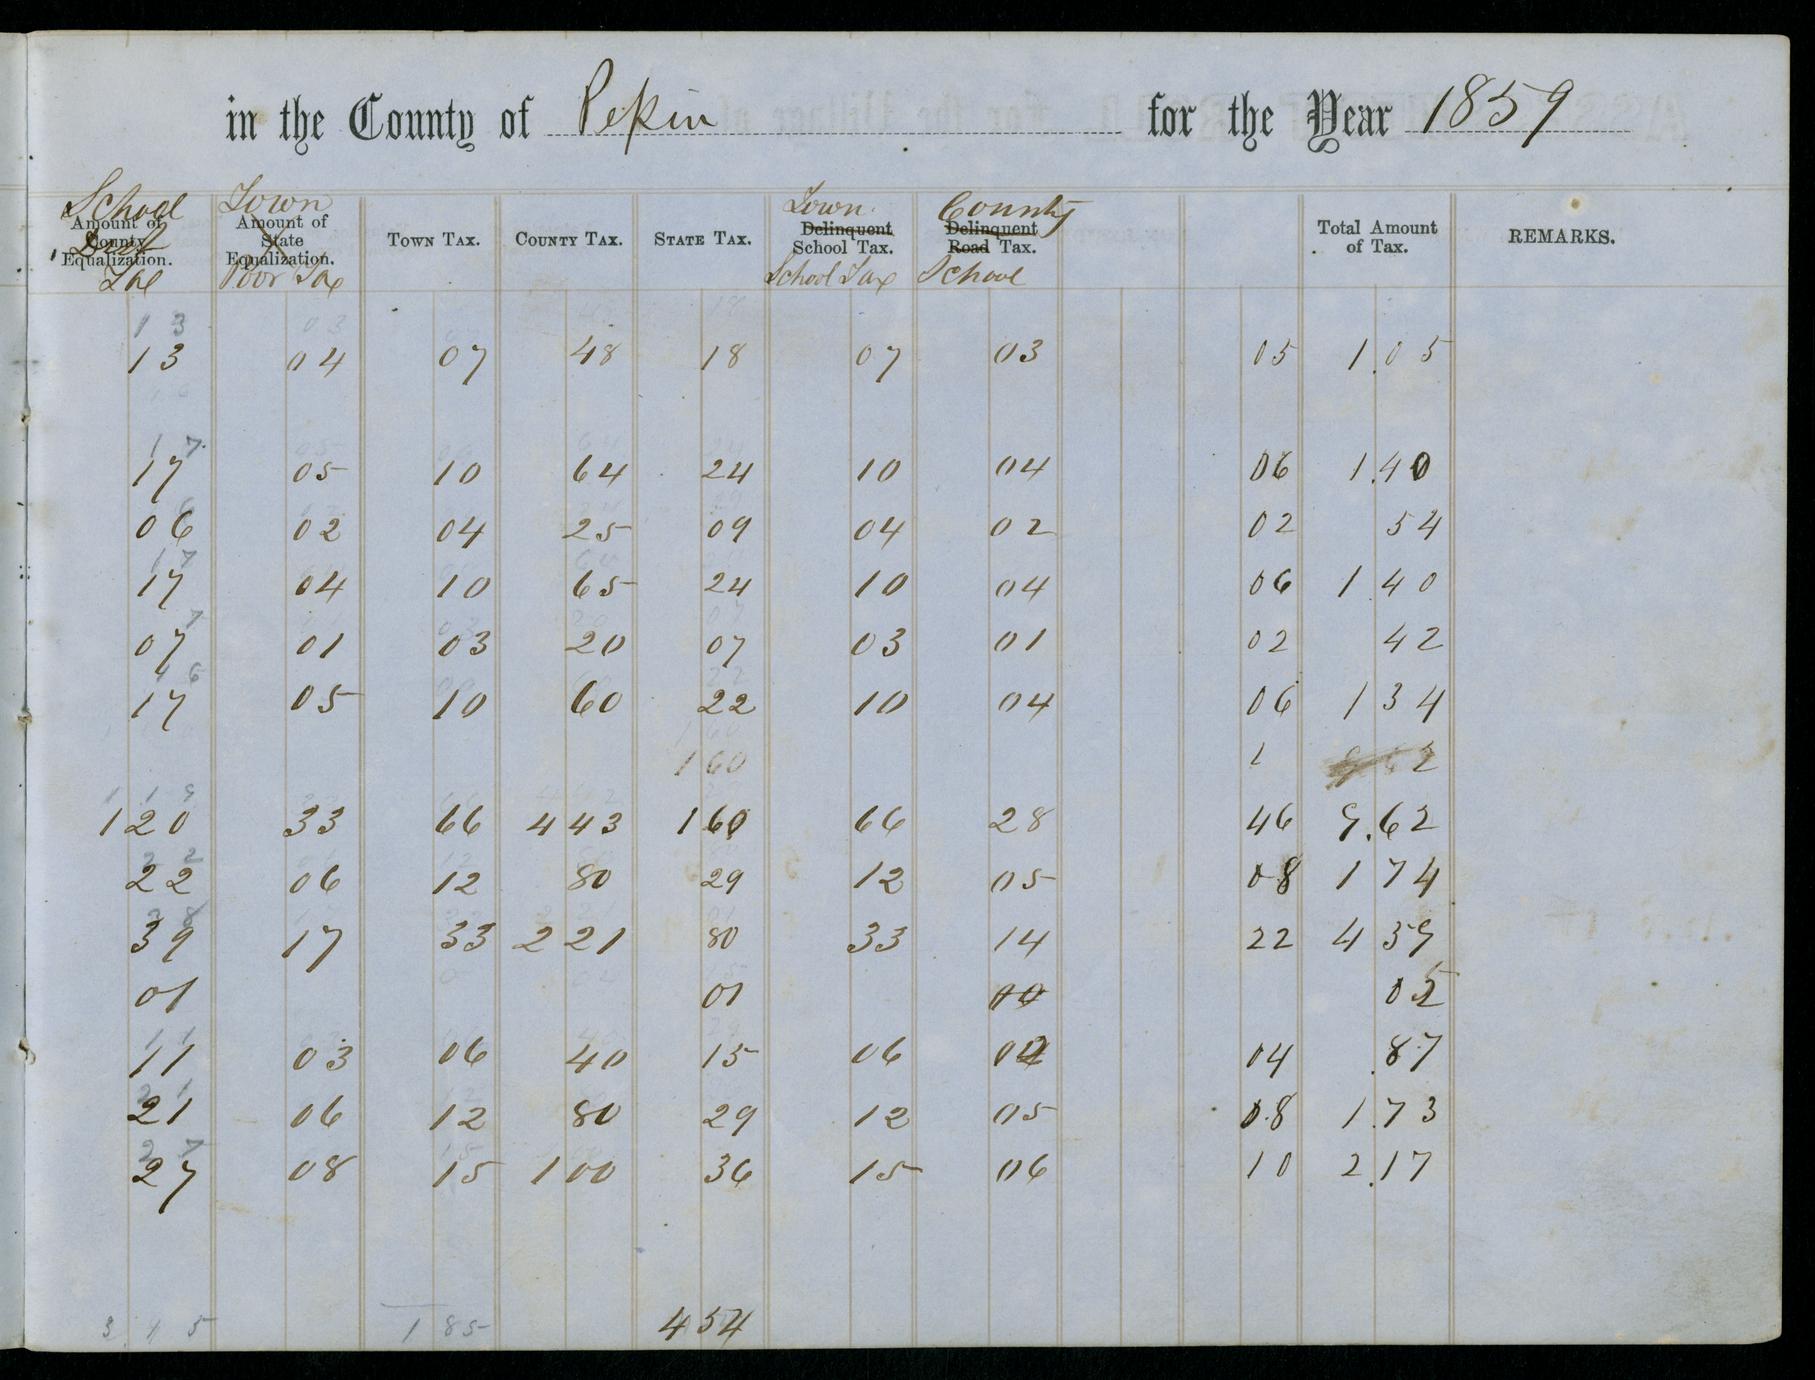 in the County of Pepin for the Year 1859
School Town Town County
Amount of County Equalization. Amount of State Equalization. TOWN TAX. COUNTY TAX. STATE TAX. Delinquent School Tax. Delinquent Road Tax. Total Amount of Tax. REMARKS.
Tax Poor Tax School Tax School
13
13 04 07 48 18 07 03 05 1.05
17
17 05 10 64 24 10 04 06 1.40
06 02 04 25 09 04 02 02 54
17
17 04 10 65 24 10 04 06 1 40
7
07 01 03 20 07 03 01 02 42
17 05 10 60 22 10 04 06 1 34
160 1
120 33 66 443 160 66 28 46 9.62
22
22 06 12 80 29 12 05 08 1 74
39 17 33 221 80 33 14 22 4 39
01 01
11
11 03 06 40 15 06 04 .87
21
21 06 12 80 29 12 05 08 1.73
27
27 08 15 100 36 15 06 10 2.17
185 454